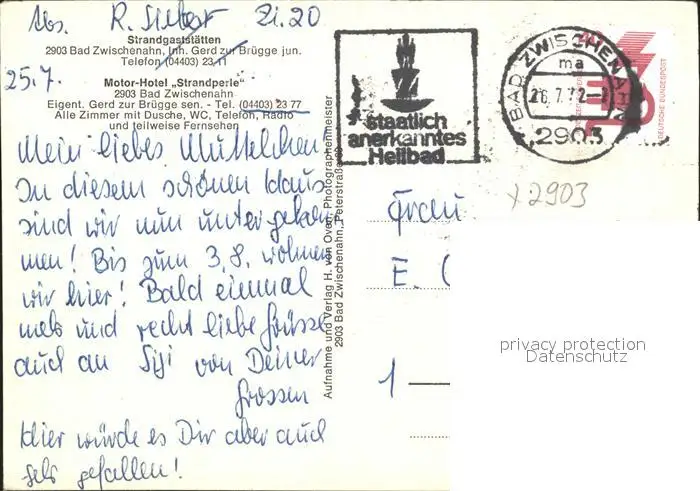 Abs. R. Siebert Zi. 20
Strandgaststätten
2903 Bad Zwischenahn, Inh. Gerd zur Brügge jun.
Telefon (04403) 23 11
25.7.
Motor-Hotel „Strandperle"
2903 Bad Zwischenahn
Eigent. Gerd zur Brügge sen. - Tel. (04403) 23 77
Alle Zimmer mit Dusche, WC, Telefon, Radio
und teilweise Fernsehen
Mein liebes Muttelchen
In diesem schönen Haus
sind wir nun untergekom
men! Bis zum 3.8. wohnen
wir hier! Bald einmal
mehr und recht liebe Grüsse
auch an Sigi von Deiner
Grossen
Hier würde es Dir aber auch
sehr gefallen!
Aufnahme und Verlag H. von Oven, Photographenmeister
2903 Bad Zwischenahn, Peterstraße
staatlich
anerkanntes
Heilbad
BAD ZWISCHENAHN
ma
26.7.72
2903
DEUTSCHE BUNDESPOST
x 2903
Frau
E.
1
privacy protection
Datenschutz